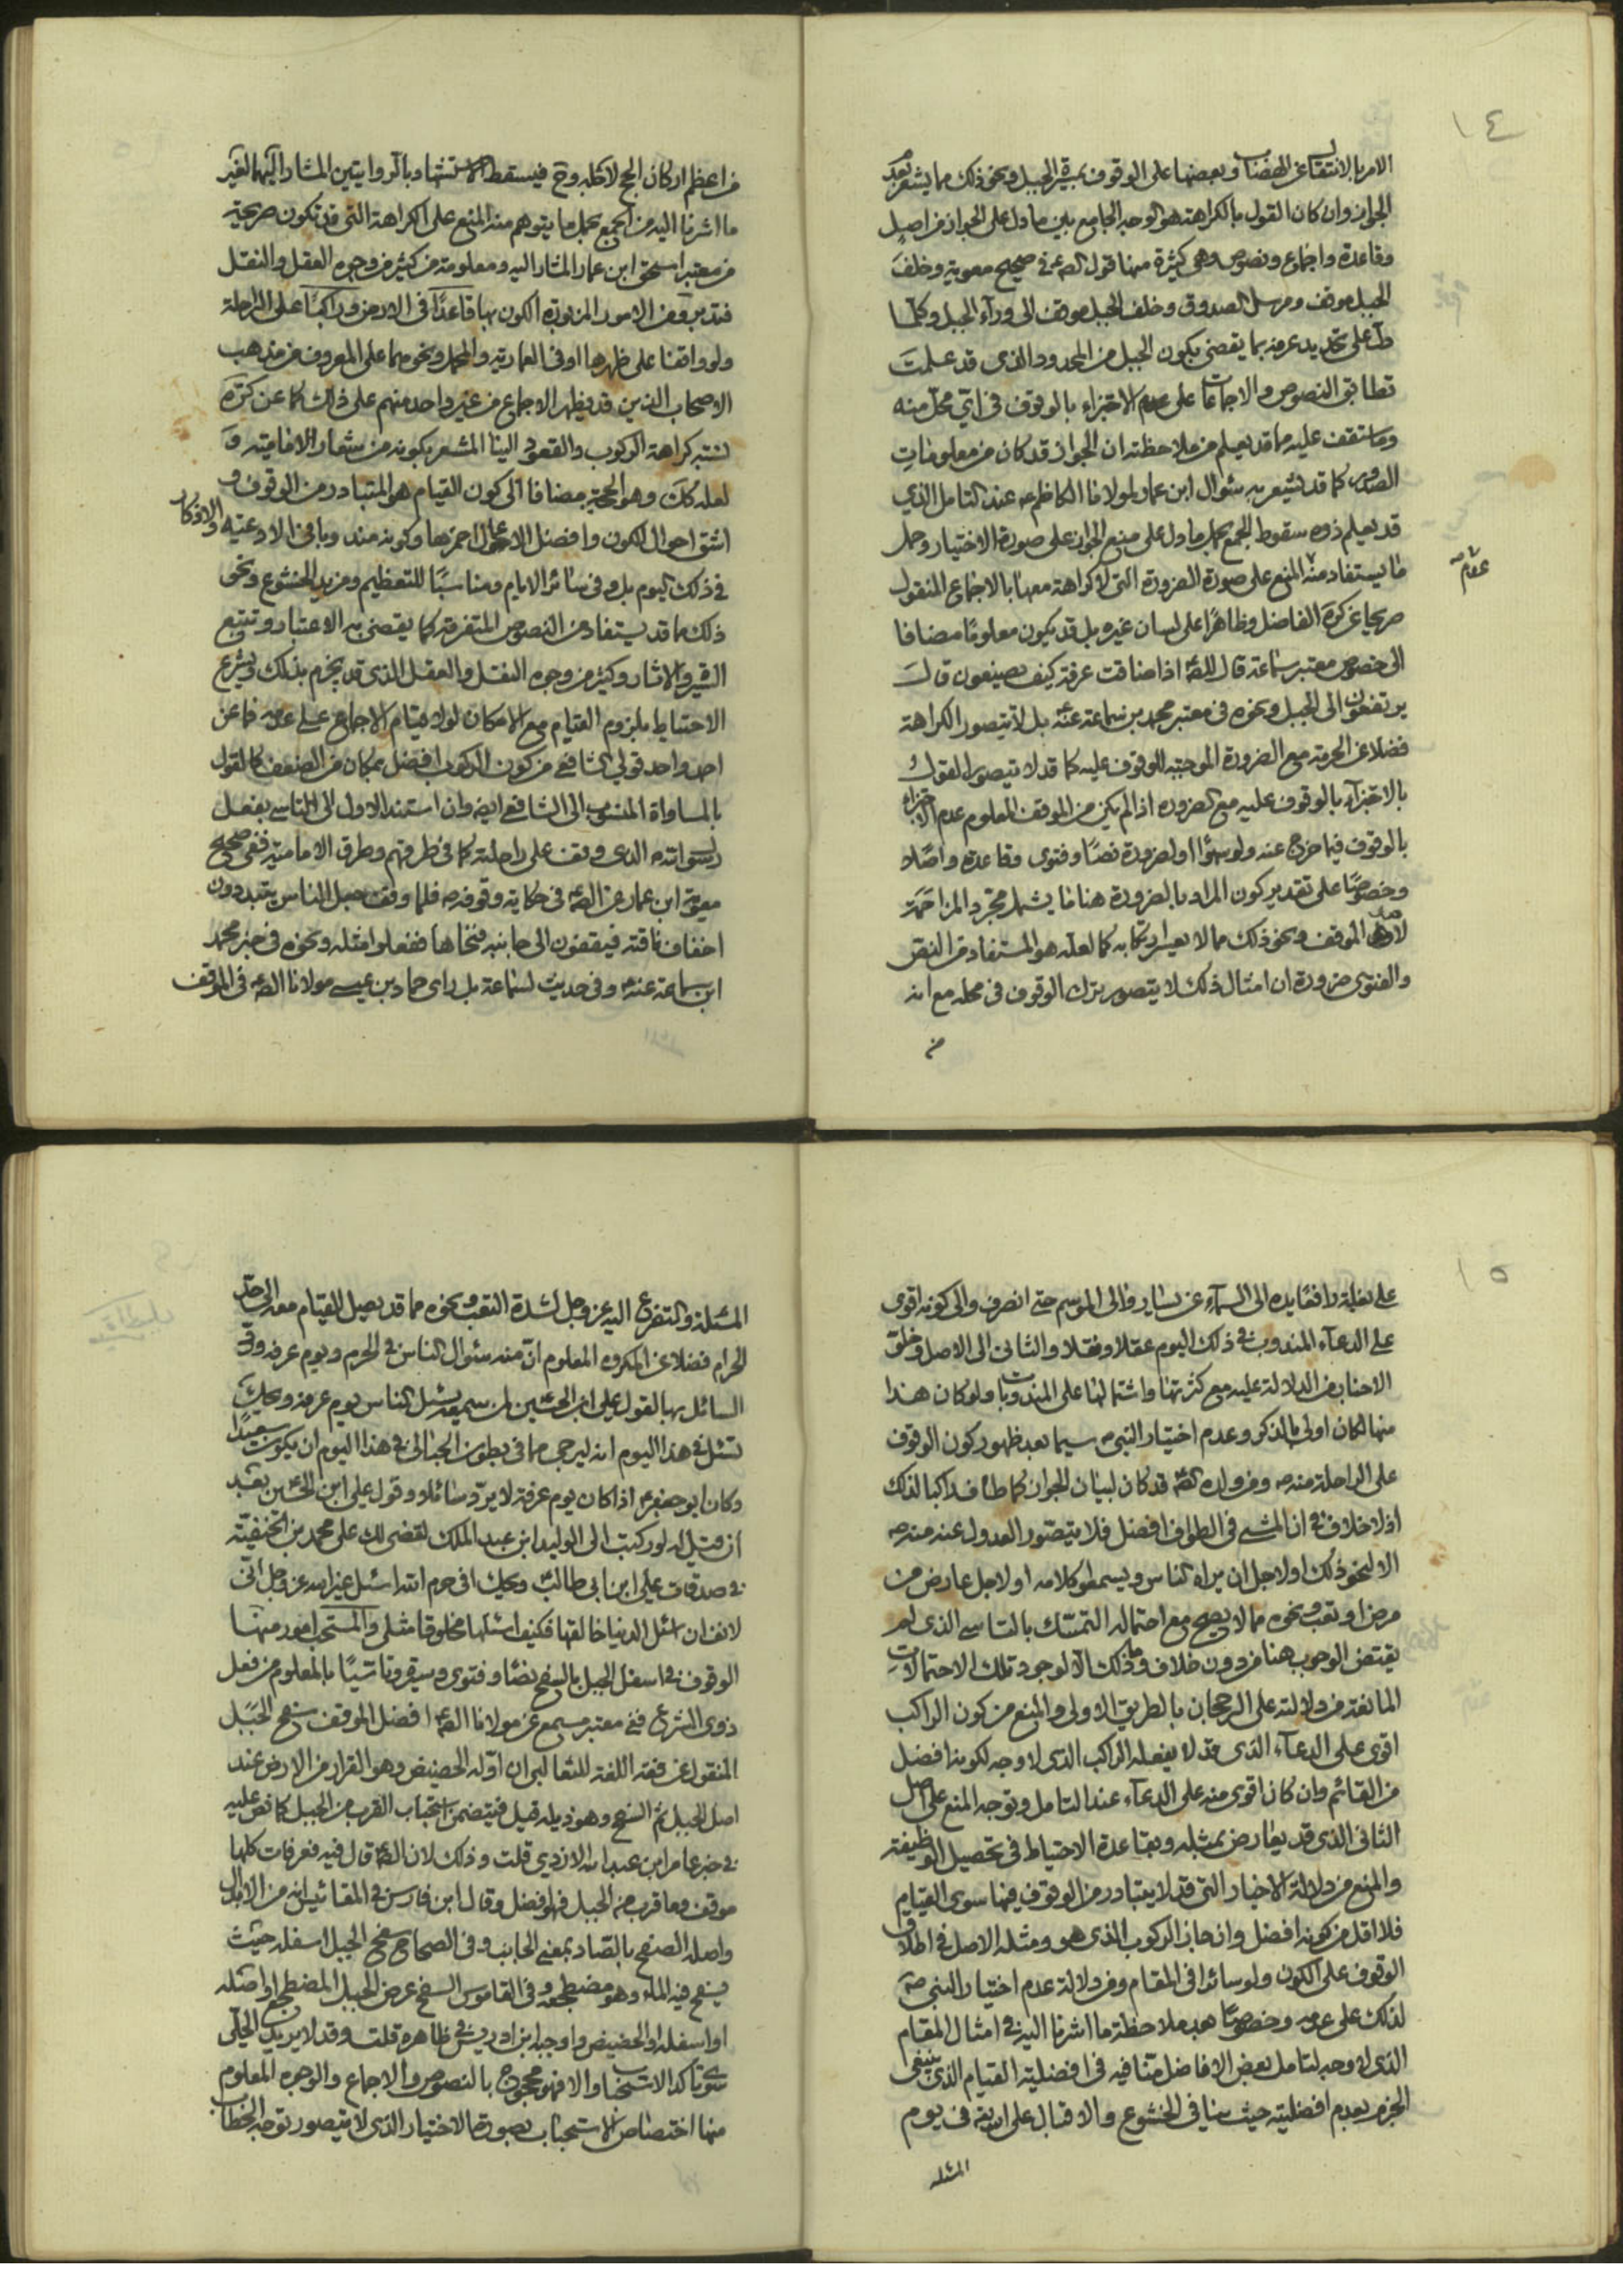 ١٤
الامر بالانتقال عن الهضاب وبعضها على الوقوف بميسرة الجبل ونحو ذلك مما يشعر بعدم
الجواز وان كان القول بالكراهة هو الوجه الجامع بين ما دل على الجواز من اصل
وقاعدة واجماع ونصوص وهى كثيرة منها قول الصم في صحيح معوية وخلف
الجبل موقف ومرسل الصدوق وخلف الجبل موقف الى وراء الجبل وكلما
دل على تحديد عرفه بما يقضى بكون الجبل من الحدود والذى قد علمت
تطابق النصوص والاجماعات على عدم الاجتزاء بالوقوف في اي محل منه
وما ستقف عليه مما قد يعلم من ملاحظته ان الجواز قد كان من معلومات
الصدور كما قد يشعر به سئوال ابن عمار لمولانا الكاظم عم عند التامل الذي
قد يعلم ذوه سقوط الجمع بحمل ما دل على منع الجواز على صورة الاختيار وحمل
ما يستفاد منه المنع على صورة الضرورة التى لا كراهة معها بالاجماع المنقول
صريحا عن كره الفاضل وظاهرا على لسان غيره بل قد يكون معلوما مضافا
الى خصوص معتبر سماعة قال للصم اذا ضاقت عرفة كيف يصنعون قال
يرتفعون الى الجبل ونحوه في معتبر محمد بن سماعة عنه بل لا يتصور الكراهة
فضلا عن الحرمة مع الضرورة الموجبة للوقوف عليه كما قد لا يتصور القول
بالاجتزاء بالوقوف عليه مع الضرورة اذا لم يكن من الموقف المعلوم عدم الاجتزاء
بالوقوف فيما خرج عنه ولو سهوا او لضرورة نصا وفتوى وقاعدة واصلا
وخصوصا على تقدير كون المراد بالضرورة هنا ما يشمل مجرد المزاحمة
لاهل الموقف ونحو ذلك مما لا يعسر ارتكابه كما لعله هو المستفاد من النص
والفتوى ضرورة ان امثال ذلك لا يتصور بترك الوقوف في محله مع انه
من
من اعظم اركان الحج لاجله وح فيسقط الاستشهاد بالروايتين المشار اليهما لغير
ما اشرنا اليه من الجمع بحمل ما يتوهم منه المنع على الكراهة التى قد تكون صريحة
من معتبر اسحق ابن عمار المشار اليه ومعلومة من كثير من وجوه العقل والنقل
فتدبر ومن الامور المزبورة الكون بها قاعدا في الارض وراكبا على الراحلة
ولو واقفا على ظهرها او في العمارية والمحمل ونحوهما على المعروف من مذهب
الاصحاب الذين قد يظهر الاجماع من غير واحد منهم على ذلك كما عن كره
نسبة كراهة الركوب والقعود الينا المشعر بكونه من شعار الامامية و
لعله كك وهو الحجة مضافا الى كون القيام هو المتبادر من الوقوف و
اشق احوال الكون وافضل الاعمال احمزها وكونه مندوبا في الادعية والاذكار
في ذلك اليوم بل وفي سائر الايام ومناسبا للتعظيم ومزيد الخشوع ونحو
ذلك مما قد يستفاد من النصوص المتفرقة كما يقضى به الاعتبار وتتبع
السير والاثار وكثير من وجوه النقل والعقل الذى قد يجزم بذلك ويشرع
الاحتياط بلزوم القيام مع الامكان لولا قيام الاجماع على عدمه فما عن
احد واحد قولي الشافعي من كون الركوب افضل بمكان من الضعف كالقول
بالمساواة المنسوب الى الشافعى ايضا وان استند الاول الى التاسى بفعل
رسول الله الذى وقف على راحلته كما في طرقهم وطرق الامامية ففى صحيح
معوية ابن عمار عن الصم في حكاية وقوفه فلما وقف جعل الناس يبتدرون
اخفاف ناقته فيقفون الى جانبه فنحاها ففعلوا مثله ونحوه في خبر محمد
ابن سماعة عنه وفي حديث لسماعة بل راى حماد بن عيسى مولانا الصم في الموقف
١٥
على بغلة رافعا يده الى السماء عن يسار والى الموسم حتى انصرف والى كونه اقوى
على الدعاء المندوب في ذلك اليوم عقلا ونقلا والثانى الى الاصل وخلو
الاخبار من الدلالة عليه مع كثرتها واشتمالها على المندوبات ولو كان هذا
منها لكان اولى بالذكر وعدم اختيار النبي سيما بعد ظهور كون الوقوف
على الراحلة منه ومن ولده الصم قد كان لبيان الجواز كما طاف راكبا لذلك
اذ لا خلاف في ان المشى في الطواف افضل فلا يتصور العدول عنه منه
الا لنحو ذلك او لاجل ان يراه الناس ويسمعوا كلامه او لاجل عارض من
مرض او تعب ونحوه مما لا يصح مع احتماله التمسك بالتاسى الذى لم
يقتض الوجوب هنا من دون خلاف وما ذلك الا لوجود تلك الاحتمالات
المانعة من دلالته على الرجحان بالطريق الاولى والمنع من كون الراكب
اقوى على الدعاء الذى قد لا يفعله الراكب الذى لا وجه لكونه افضل
من القائم وان كان اقوى منه على الدعاء عند التامل وتوجه المنع على اصل
الثانى الذى قد يعارض بمثله وبقاعدة الاحتياط في تحصيل الوظيفة
والمنع من دلالة الاخبار التى قد لا يتبادر من الوقوف فيها سوى القيام
فلا اقل من كونه افضل وان جاز الركوب الذى هو ومثله الاصل في اطلاق
الوقوف على الكون ولو سائرا في المقام ومن دلالة عدم اختيار النبى ص
لذلك على عدمه وخصوصا بعد ملاحظة ما اشرنا اليه في امثال المقام
الذى لا وجه لتامل بعض الافاضل متنا فيه في افضلية القيام الذى ينبغى
الجزم بعدم افضليته حيث ينافى الخشوع والاقبال على الله في يوم
المسئله
المسئلة والتضرع اليه عز وجل لشدة التعب ونحوه مما قد يصل القيام معه الى حد
الحرام فضلا عن المكروه المعلوم ان منه سئوال الناس في الحرم ويوم عرفه ورد
السائل بها لقول على ابن الحسين لمن سمعه يسئل الناس يوم عرفه ويحك
تسئل في هذا اليوم انه ليرجى مما في بطون الحبالى في هذا اليوم ان يكون سعيدا
وكان ابو جعفر اذا كان يوم عرفة لا يرد سائلا وقول على ابن الحسين بعد
ان قيل له لو ركبت الى الوليد ابن عبد الملك لقضى لك على محمد بن الحنفية
في صدقات على ابن ابى طالب ويحك افى حرم الله اسئل غير الله عز وجل انى
لانف ان اسئل الدنيا خالقها فكيف اسئلها مخلوقا مثلى والمستحب امور منها
الوقوف في اسفل الجبل بالسفح نصا وفتوى وسيرة وتاسيا بالمعلوم من فعل
ذوى الشرع ففي معتبر مسمع عن مولانا الصم افضل الموقف سفح الجبل
المنقول عن فقه اللغة للثعالبى ان اوله الحضيض وهو القرار من الارض عند
اصل الجبل ثم السفح وهو ذيله قيل فيتضمن استحباب القرب من الجبل كما نص عليه
في خبر عامر ابن عبد الله الازدي قلت وذلك لان الصم قال فيه فعرفات كلها
موقف وما قرب من الجبل فهو افضل وقال ابن فارس في المقائيس انه من الابدال
واصله الصفح بالصاد بمعنى الجانب وفي الصحاح سفح الجبل اسفله حيث
يسفح فيه الماء وهو مضطجعه وفي القاموس السفح عرض الجبل المضطجع او اصله
او اسفله او الحضيض واوجبه ابن ادريس في ظاهره قلت وقد لا يريد الحلي
سوى تاكد الاستحباب والا فهو محجوج بالنصوص والاجماع والوجوه المعلوم
منها اختصاص الاستحباب بصورة الاختيار الذى لا يتصور توجه الخطاب